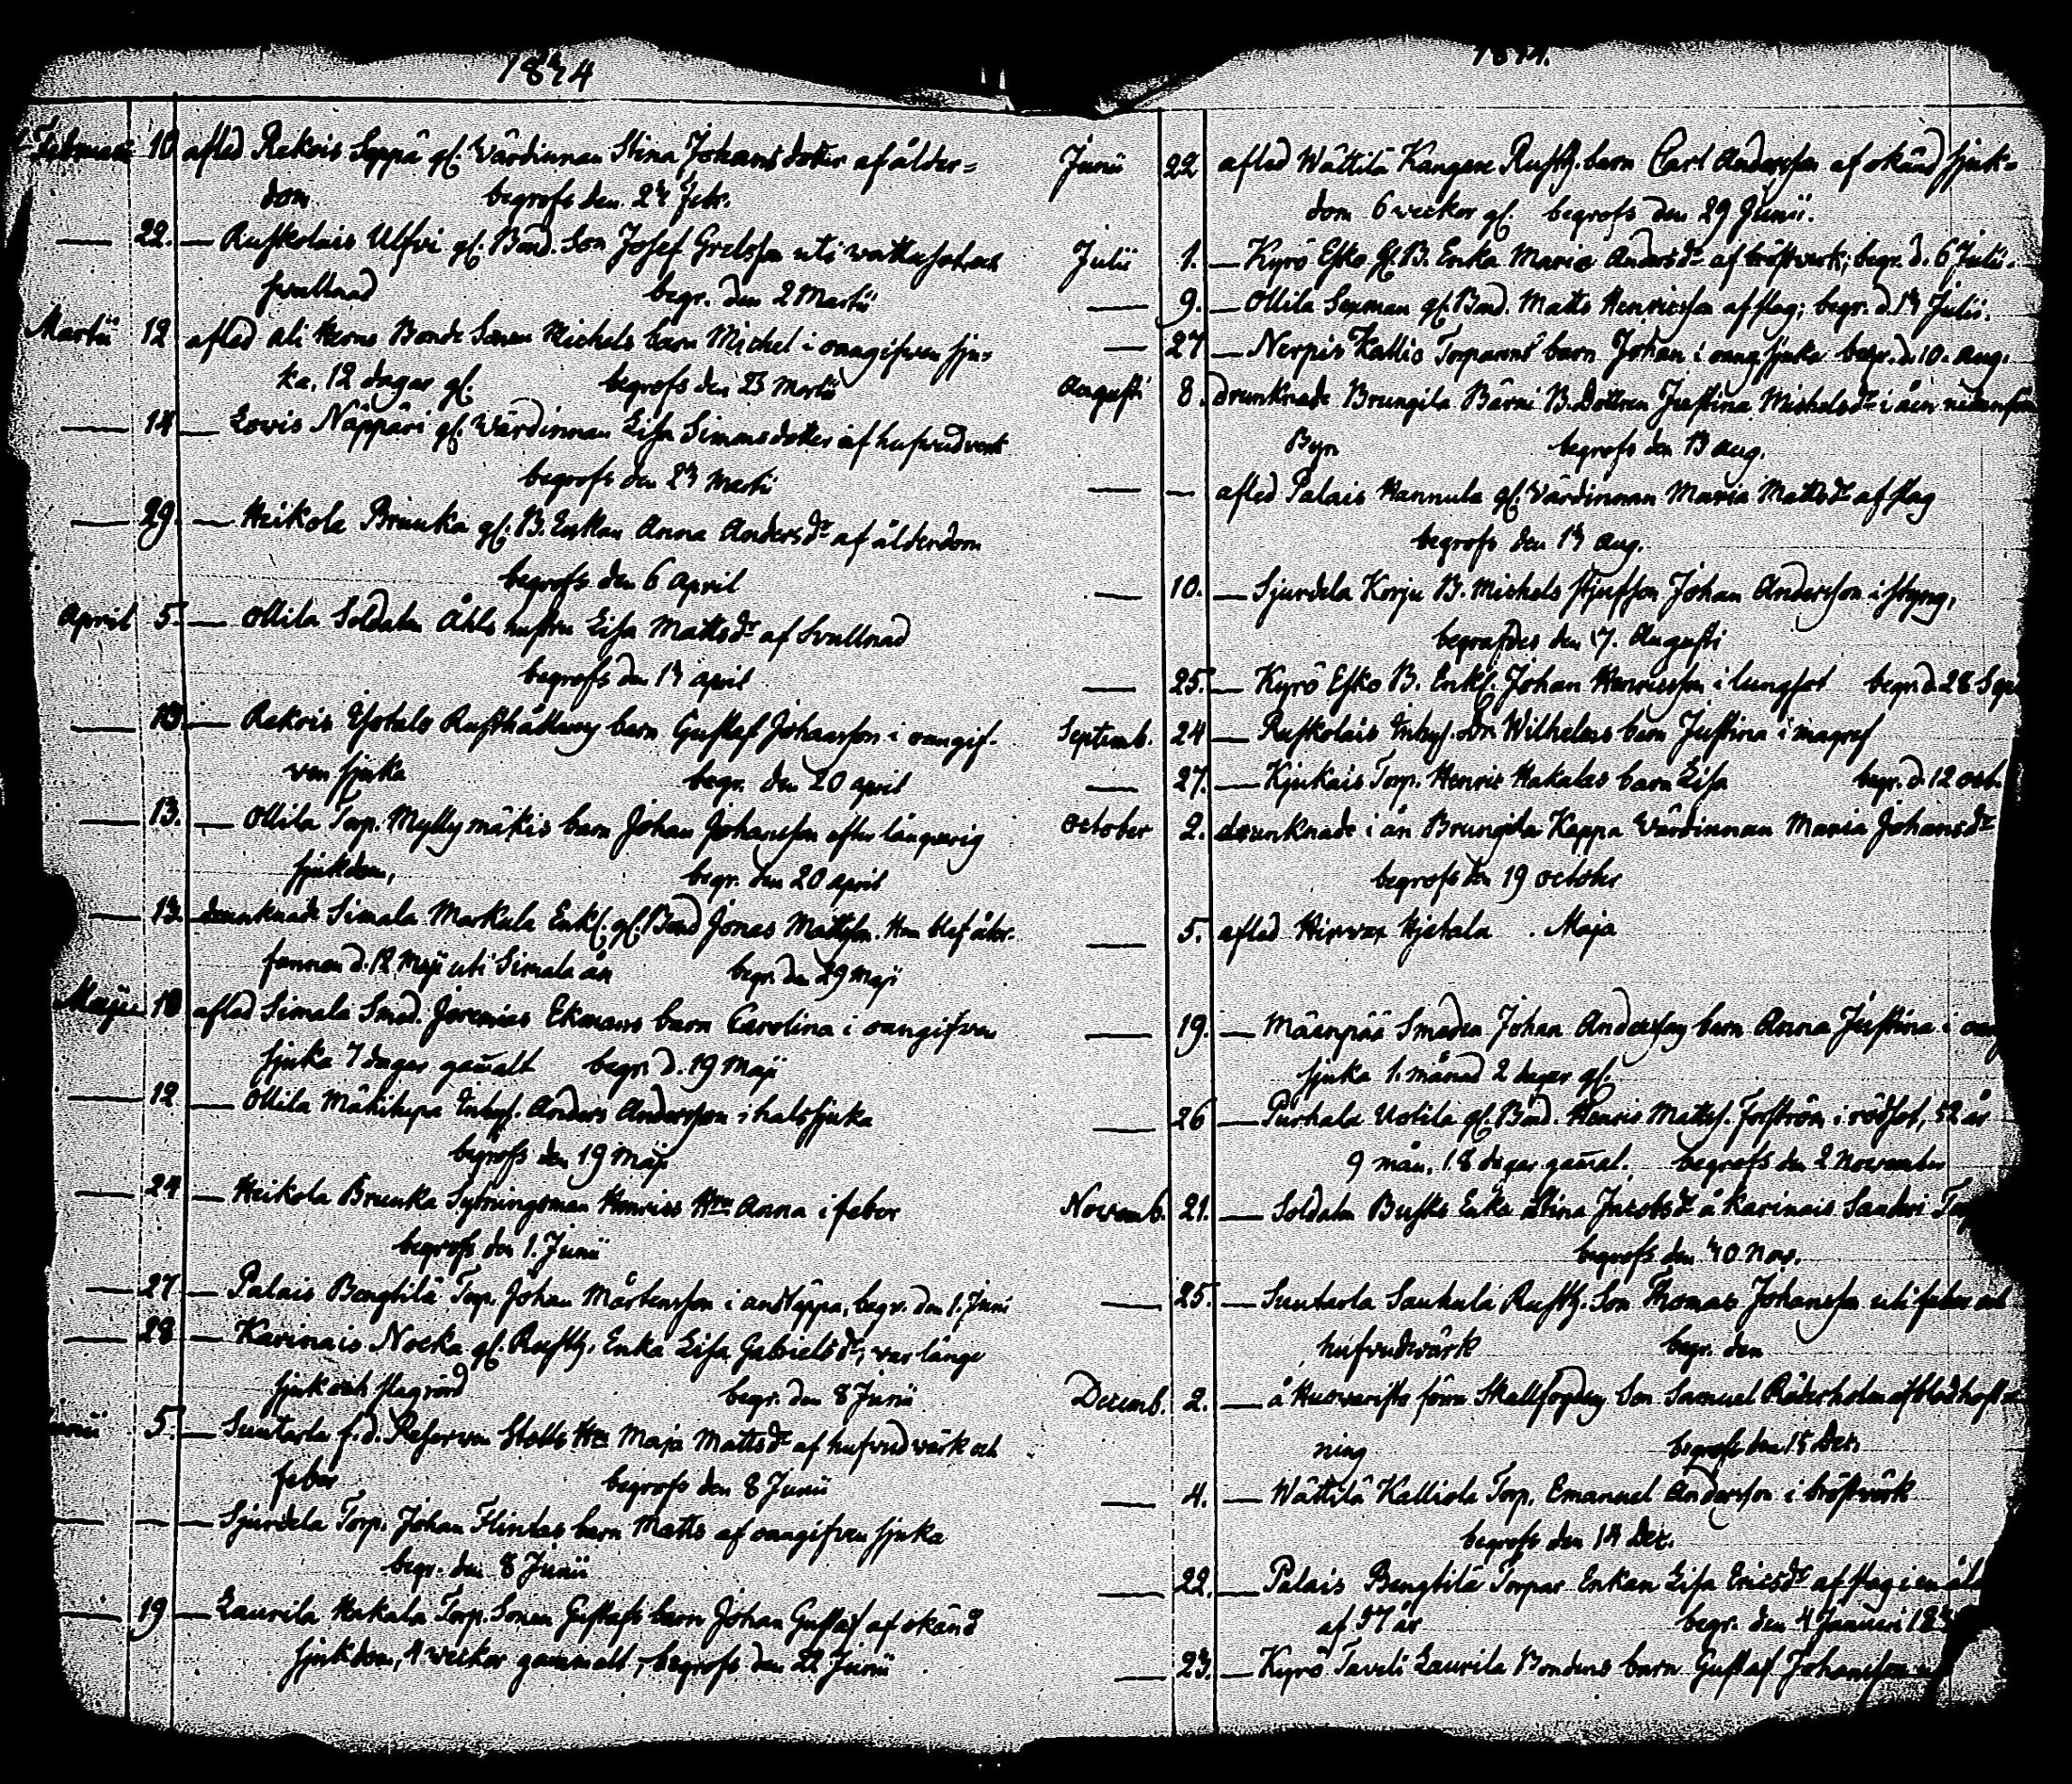 1824
Februarii 10 afled Rekois Seppä gl. Wärdinnan Stina Johansdotter af ålder=
dom begrofs den 24 Febr.
22. Ruskolais Ulfvi gl. Bond. Son Josef Grelsson uti
svullnad begr. den 2 Martii
Martii 12 afled Ali Herns Bonde Sonen Michels barn Michel i oangifven sju=
ka, 12 dagar gl. begrofs den 23 Martii
14 Lovis Näppäri gl. Wärdinnan Lisa Simonsdotter af hufwudverk
begrofs den 24 Martii
29. Heikola Brunka gl. B. Enkan Anna Andersdr af ålderdom
begrofs den 6 April
April 5. Ollila Soldaten Åhls hustru Lisa Mattsdr af Svullnad
begrofs den 14 april
10 Rekois Barn Gustaf Johansson i oangif-
ven sjuka begr. den 20 april
13. Ollila Torp. Myllymäkis barn Johan Johansson efter långvarig
sjukdom, begr. den 20 April
13. drunknade Simala Markula Enkl. gl. Bond Jonas Mattsson. Han blef åter-
funnen d. 12 Maji uti Simala ån begr. den 29 Maji
Maji 10 afled Simala Smed. Jeremias Ekmans barn Carolina i oangifven
sjuka 7 dagar gamalt begr. d. 19 Maji
12 Ollila Mäkitupa Inhys. Anders Andersson i halssjuka
begrofs den 19 Maji
24 Heikola Brunka Sytningsman Henrics Hru Anna i feber
begrofs den 1. Junii
27 Palais Bengtilä Torp. Johan Mårtensson i andtäppa, begr. den 1. Juni
28 Karinais Nocka gl. Rusth. Enka Lisa Gabrielsdr, var länge
sjuk och slagrörd begr. den 8 Junii
5. Suutarla f.d. Reserven Stolts Hru Maja Mattsdr af hufvudvärk och
feber begrofs den 8 Junii
Sjurdela Torp. Johan Flintas barn Matts af oangifven sjuka
begr. den 8 Junii
19 Laurila Hakala Torp. Sonen Gustafs barn Johan Gustaf af okänd
sjukdom, 4 veckor gammalt, begrofs den 22 Junii
Junii 22 afled Wättilä Kangare Rusth. barn Carl Andersson af okänd sjuk=
dom 6 veckor gl. begrofs den 29 Junii.
Julii 1. Kyrö Esko gl. B. Enka Maria Andersdr af bröstverk; begr. d. 6 Julii.
9. Ollila Sexman gl. Bond. Matts Henricsson af slag; begr. d. 14 Julii.
27 Nerpis Kallio Torparens barn Johan i oang. sjuka begr. d. 10. aug.
Augusti 8. drunknade Brungila Bärni B. Dottren Justina Michelsdr i åen nedanför
Byn begrofs den 13 aug.
afled Palais Hannula gl. Wärdinnan Maria Mattsdr af slag
begrofs den 14 aug.
10. Sjurdela Korju B. Michels styfson Johan Andersson i styng,
begrafdes den 17. Augusti
25. Kyrö Esko B. Enkl. Johan Henricsson i lungsot begr. d. 28 Sep
Septemb. 24 Ruskolais Inhys. Wilhelms barn Justina i magref
27. Kjukais Torp. Henric Hakalas barn Lisa begr. d. 12 octb.
October 2. drunknade i ån Brungila Kappa Wärdinnan Maria Johansdr
begrofs den 19 october
5. afled Hirvox Hjetala . Maja
19. Mäenpää Smeden Johan Anderssons barn Anna Justina i oang
sjuka 1. månad 2 dagar gl.
26 Purhala Uotila gl. Bond. Henric Mattss. Forström i rödsot, 52 år
9 mån. 18 dagar gamal. begrofs den 2 November
Novemb. 21. Soldaten Busks Enka Stina Jacobsdr å Karinais Sanderi Torp
begrofs den 30 Nov.
25. Suutarla Saukula Rusth. Son Thomas Johansson uti feber och
hufvudvärk begr. den
Decemb. 2. å Huovarists förra Skallfogdens Son Samuel af blodhost=
ning begrofs den 15 Dec.
4. Wättilä Kalliola Torp. Emanuel Andersson i bröstvärk
begrofs den 14 Dec.
22. Palais Bengtilä Torpar Enkan Lisa Ericsdr af slag i en ål
af 57 år begr. den 4 Januari 182
23. Kyrö Taveli Laurila Bondens barn Gustaf Johansson